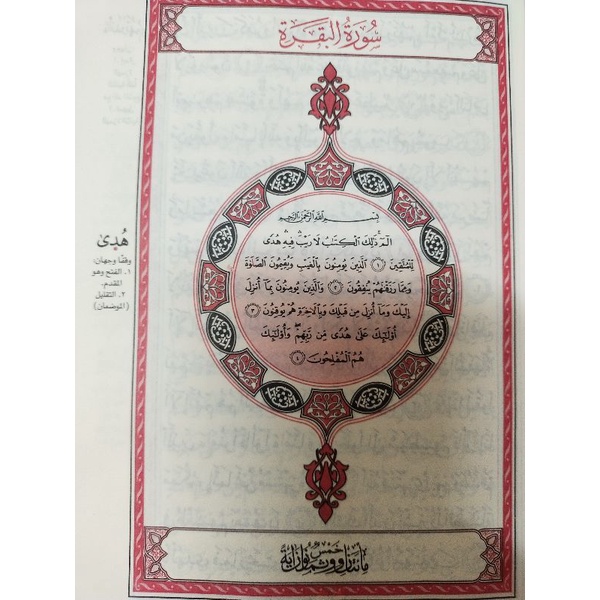 سُورَةُ البَقَرَةِ
بِسْمِ اللَّهِ الرَّحْمَٰنِ الرَّحِيمِ
الٓمٓ ذَٰلِكَ ٱلْكِتَٰبُ لَا رَيْبَ فِيهِ هُدًى
لِّلْمُتَّقِينَ ١ ٱلَّذِينَ يُومِنُونَ بِٱلْغَيْبِ وَيُقِيمُونَ ٱلصَّلَوٰةَ
وَمِمَّا رَزَقْنَٰهُمْ يُنفِقُونَ ٢ وَٱلَّذِينَ يُومِنُونَ بِمَآ أُنزِلَ
إِلَيْكَ وَمَآ أُنزِلَ مِن قَبْلِكَ وَبِٱلْأَخِرَةِ هُمْ يُوقِنُونَ ٣
أُوْلَٰٓئِكَ عَلَىٰ هُدًى مِّن رَّبِّهِمْ وَأُوْلَٰٓئِكَ
هُمُ ٱلْمُفْلِحُونَ ٤
هُدًى
وقفًا وجهان:
١. الفتح وهو
المقدم.
٢. التقليل
(الموضعان)
مائتان وخمس وثمانون آية